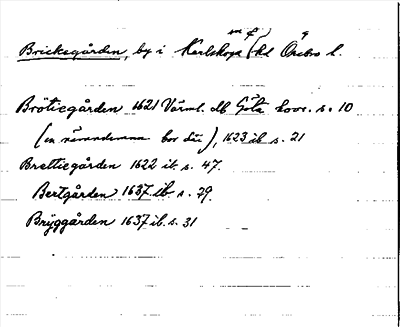 Brickegården, by i Karlskoga hd Örebro l.
Brötiegården 1621 Värml. älb Göta kvar. s. 10
(en närandemann bor där), 1623 ib s. 21
Brettiegården 1622 ib. s. 47.
Bertgården 1637 ib. s. 29.
Bryggården 1637 ib. s. 31